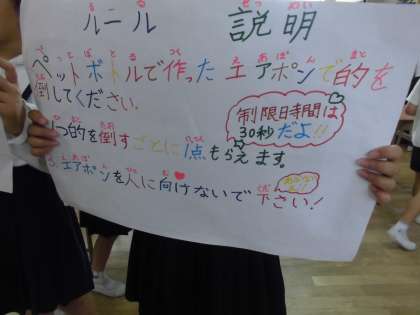 ルール 説明
ペットボトルで作った エアポンで的を
倒してください。
1つ的を倒すごとに1点もらえます。
制限時間は
30秒だよ!!
3.エアポンを人に向けないで 下さい!